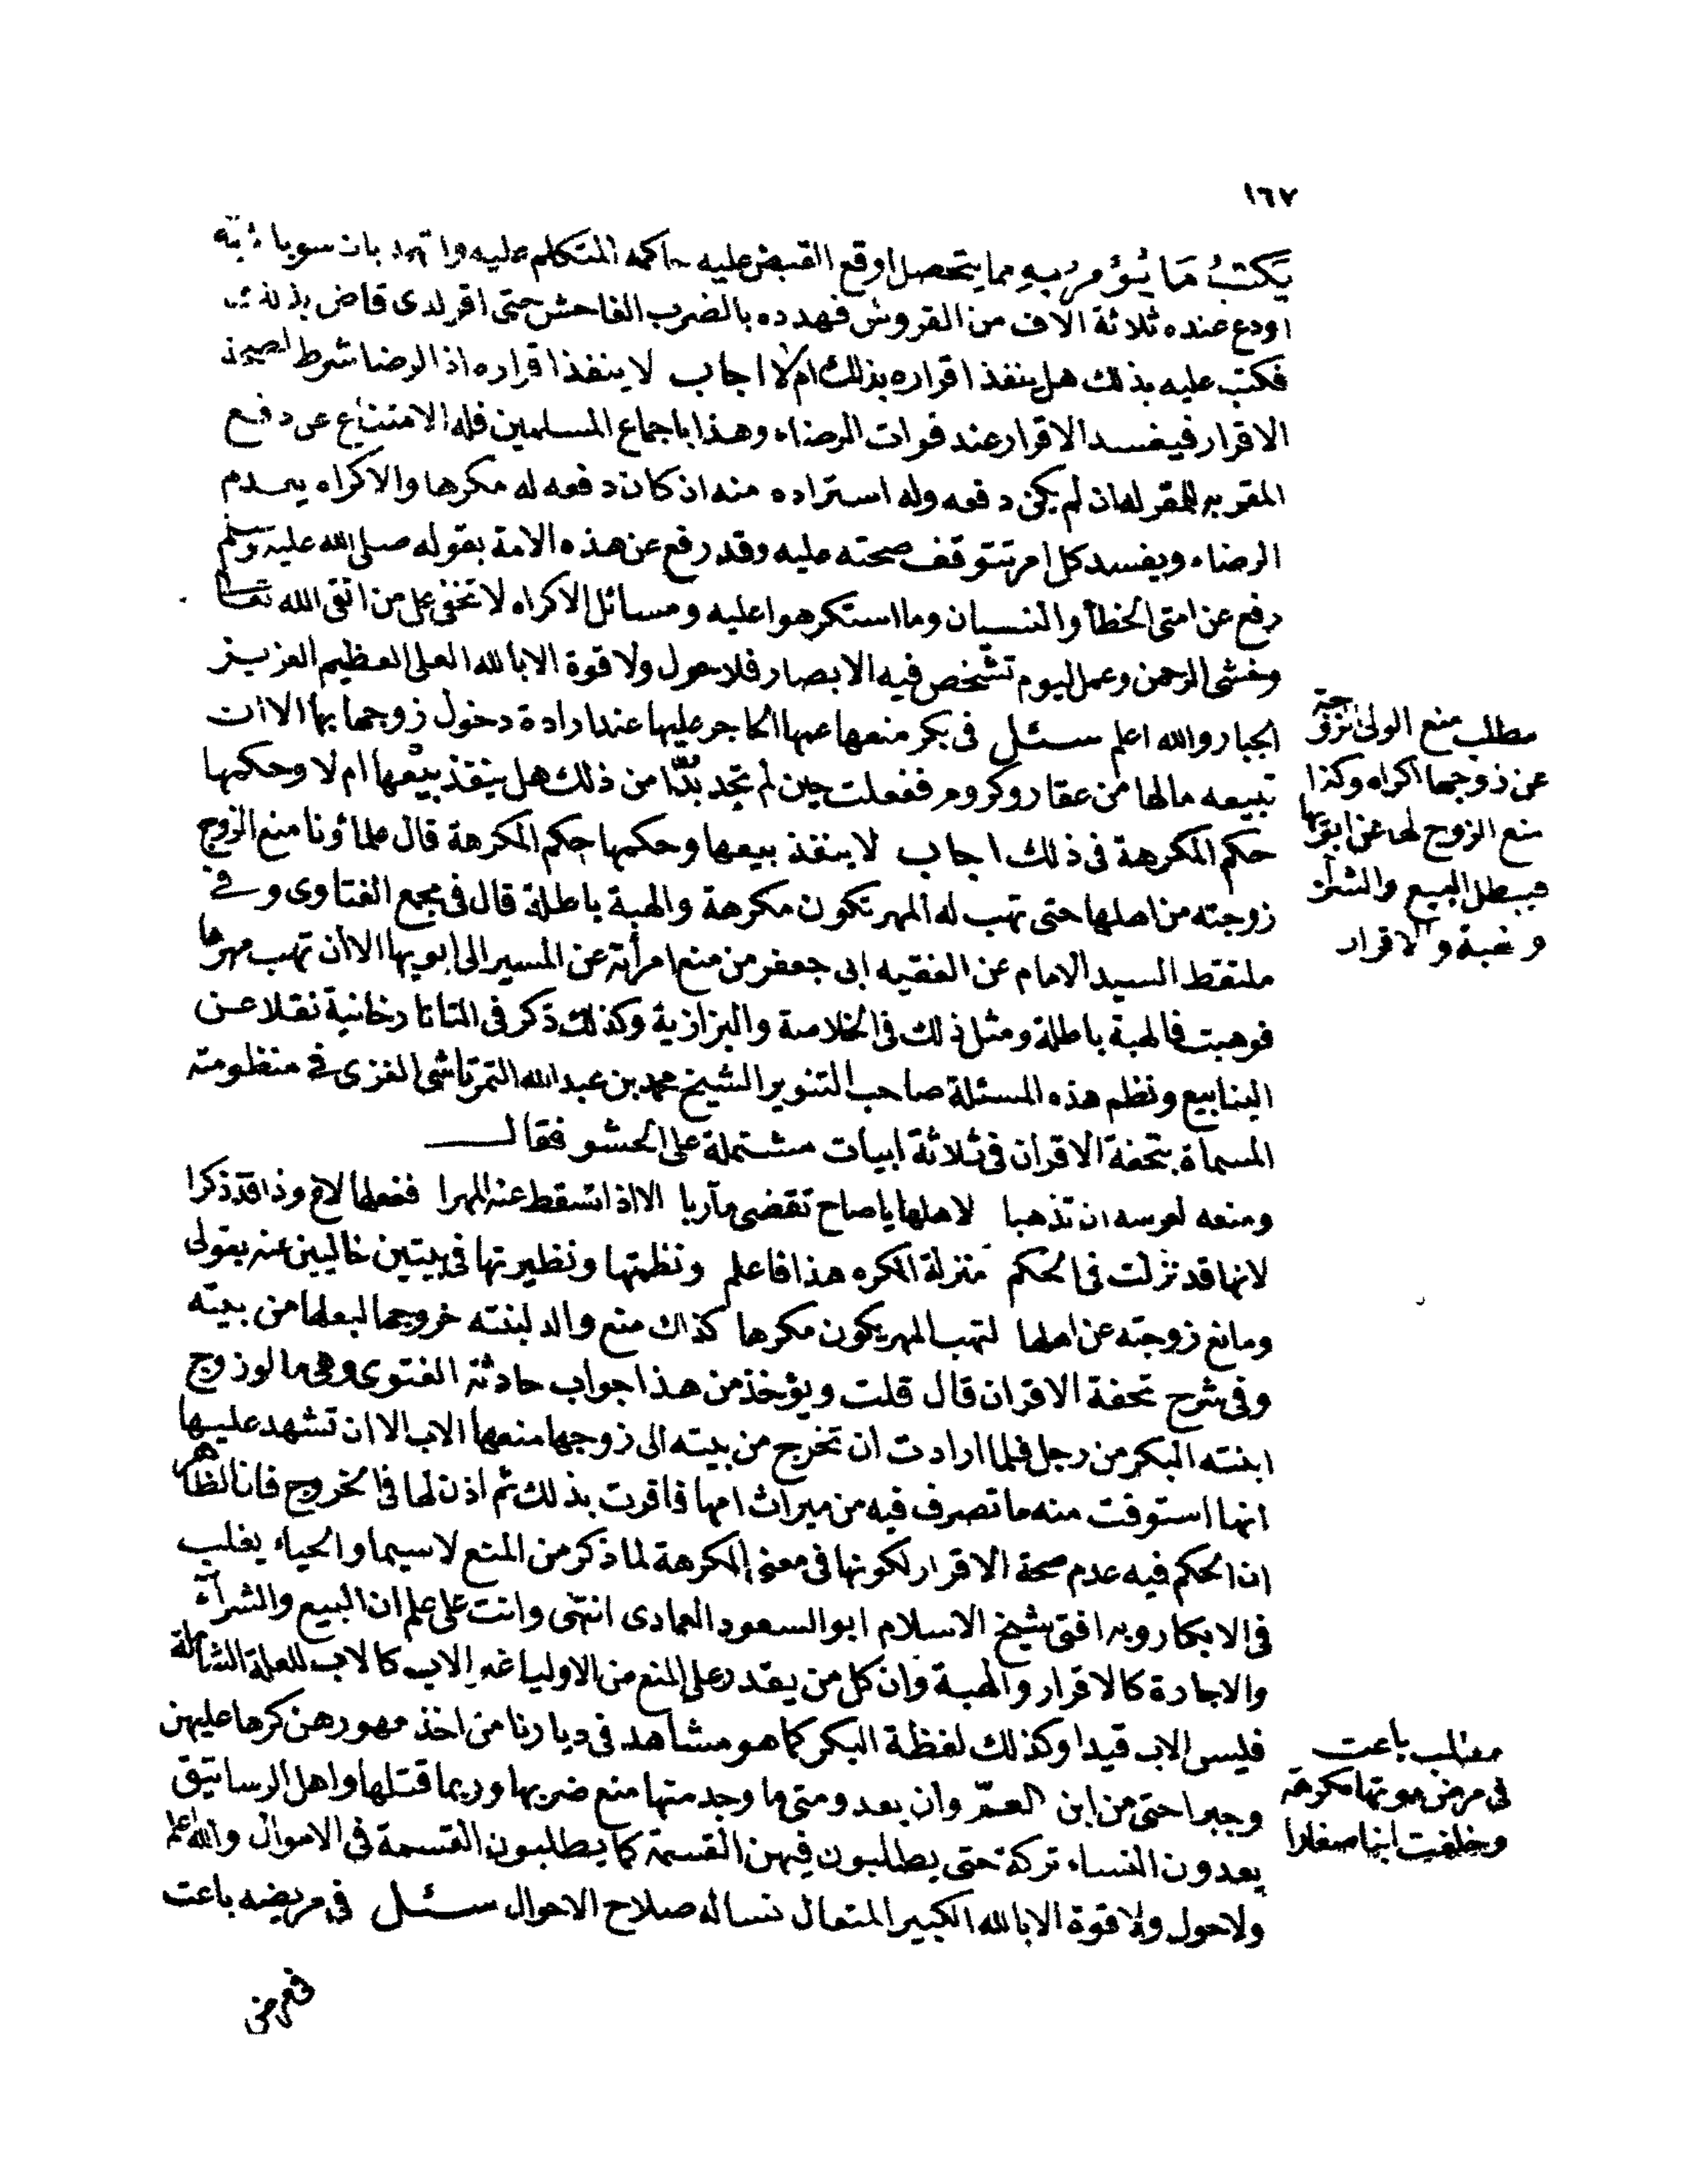 ١٦٧
يَكتبُ مَا يُؤمرُ بهِ مما يتحصل اوقع القبض عليه حاكمه المتكلم عليه واتهمه بان سوباشيه
اودع عنده ثلاثة الاف من القروش فهدده بالضرب الفاحش حتى اقر لدى قاض بذلك
فكتب عليه بذلك هل ينفذ اقراره بذلك ام لا اجاب لا ينفذ اقراره اذ الرضا شرط لصحة
الاقرار فيفسد الاقرار عند فوات الرضاء وهذا باجماع المسلمين فله الامتناع عن دفع
المقر به للمقر له ان لم يكن دفعه وله استراده منه ان كان دفعه له مكرها والاكراه يعدم
الرضاء ويفسد كل امر تتوقف صحته عليه وقد رفع عن هذه الامة بقوله صلى الله عليه وسلم
رفع عن امتى الخطأ والنسيان وما استكرهوا عليه ومسائل الاكراه لا تخفى على من اتقى الله تعالى
وخشى الرحمن وعمل ليوم تشخص فيه الابصار فلا حول ولا قوة الا بالله العلى العظيم العزيز
الجبار والله اعلم سئل فى بكر منعها عمها الحاجر عليها عند ارادة دخول زوجها بها الا ان
تبيعه مالها من عقار وكروم ففعلت حين لم تجد بُدًّا من ذلك هل ينفذ بيعها ام لا وحكمها
حكم المكرهة فى ذلك اجاب لا ينفذ بيعها وحكمها حكم المكرهة قال علماؤنا منع الزوج
زوجته من اهلها حتى تهب له المهر تكون مكرهة والهبة باطلة قال فى مجمع الفتاوى وفى
ملتقط السيد الامام عن الفقيه ابى جعفر من منع امرأته عن المسير الى ابويها الا ان تهب مهرها
فوهبت فالهبة باطلة ومثل ذلك فى الخلاصة والبزازية وكذلك ذكر فى التاتارخانية نقلا عن
الينابيع ونظم هذه المسئلة صاحب التنوير الشيخ محمد بن عبد الله التمرتاشى الغزى فى منظومته
المسماة بتحفة الاقران فى ثلاثة ابيات مشتملة على الحشو فقال
ومنعه لعرسه ان تذهبا لاهلها يا صاح تقضى مآربا الا اذا تسقط عنه المهرا ففعلها لاغ وذا قد ذكرا
لانها قد نزلت فى الحكم منزلة المكره هذا فاعلم ونظمتها ونظيرتها فى بيتين خاليين عنه بقولى
ومانع زوجته عن اهلها لتهب المهر يكون مكرها كذاك منع والد لبنته خروجها لبعلها من بيته
وفى شرح تحفة الاقران قال قلت ويؤخذ من هذا جواب حادثة الفتوى وهى ما لو زوج
ابنته البكر من رجل فلما ارادت ان تخرج من بيته الى زوجها منعها الاب الا ان تشهد عليها
انها استوفت منه ما تصرف فيه من ميراث امها فاقرت بذلك ثم اذن لها فى الخروج فان الظاهر
ان الحكم فيه عدم صحة الاقرار لكونها فى معنى المكرهة لما ذكر من المنع لا سيما والحياء يغلب
فى الابكار وبه افتى شيخ الاسلام ابو السعود العمادى انتهى وانت على علم ان البيع والشراء
والاجارة كالاقرار والهبة وان كل من يقدر على المنع من الاوليا غير الاب كالاب للعلة الشاملة
فليس الاب قيدا وكذلك لفظة البكر كما هو مشاهد فى ديارنا من اخذ مهورهن كرها عليهن
وجبرا حتى من ابن العمّ وان بعد ومتى ما وجد منها منع ضربها وربما قتلها واهل الرساتيق
يعدون النساء تركة حتى يطلبون فيهن القسمة كما يطلبون القسمة فى الاموال والله اعلم
ولا حول ولا قوة الا بالله الكبير المتعال نساله صلاح الاحوال سئل فى مريضه باعت
مطلب منع الولى المزوجة
عن زوجها اكراه وكذا
منع الزوج لها عن ابويها
فيبطل البيع والشراء
والهبة والاقرار
مطلب باعت
فى مرض موتها مكرهة
وخلفت ابنا صغارا